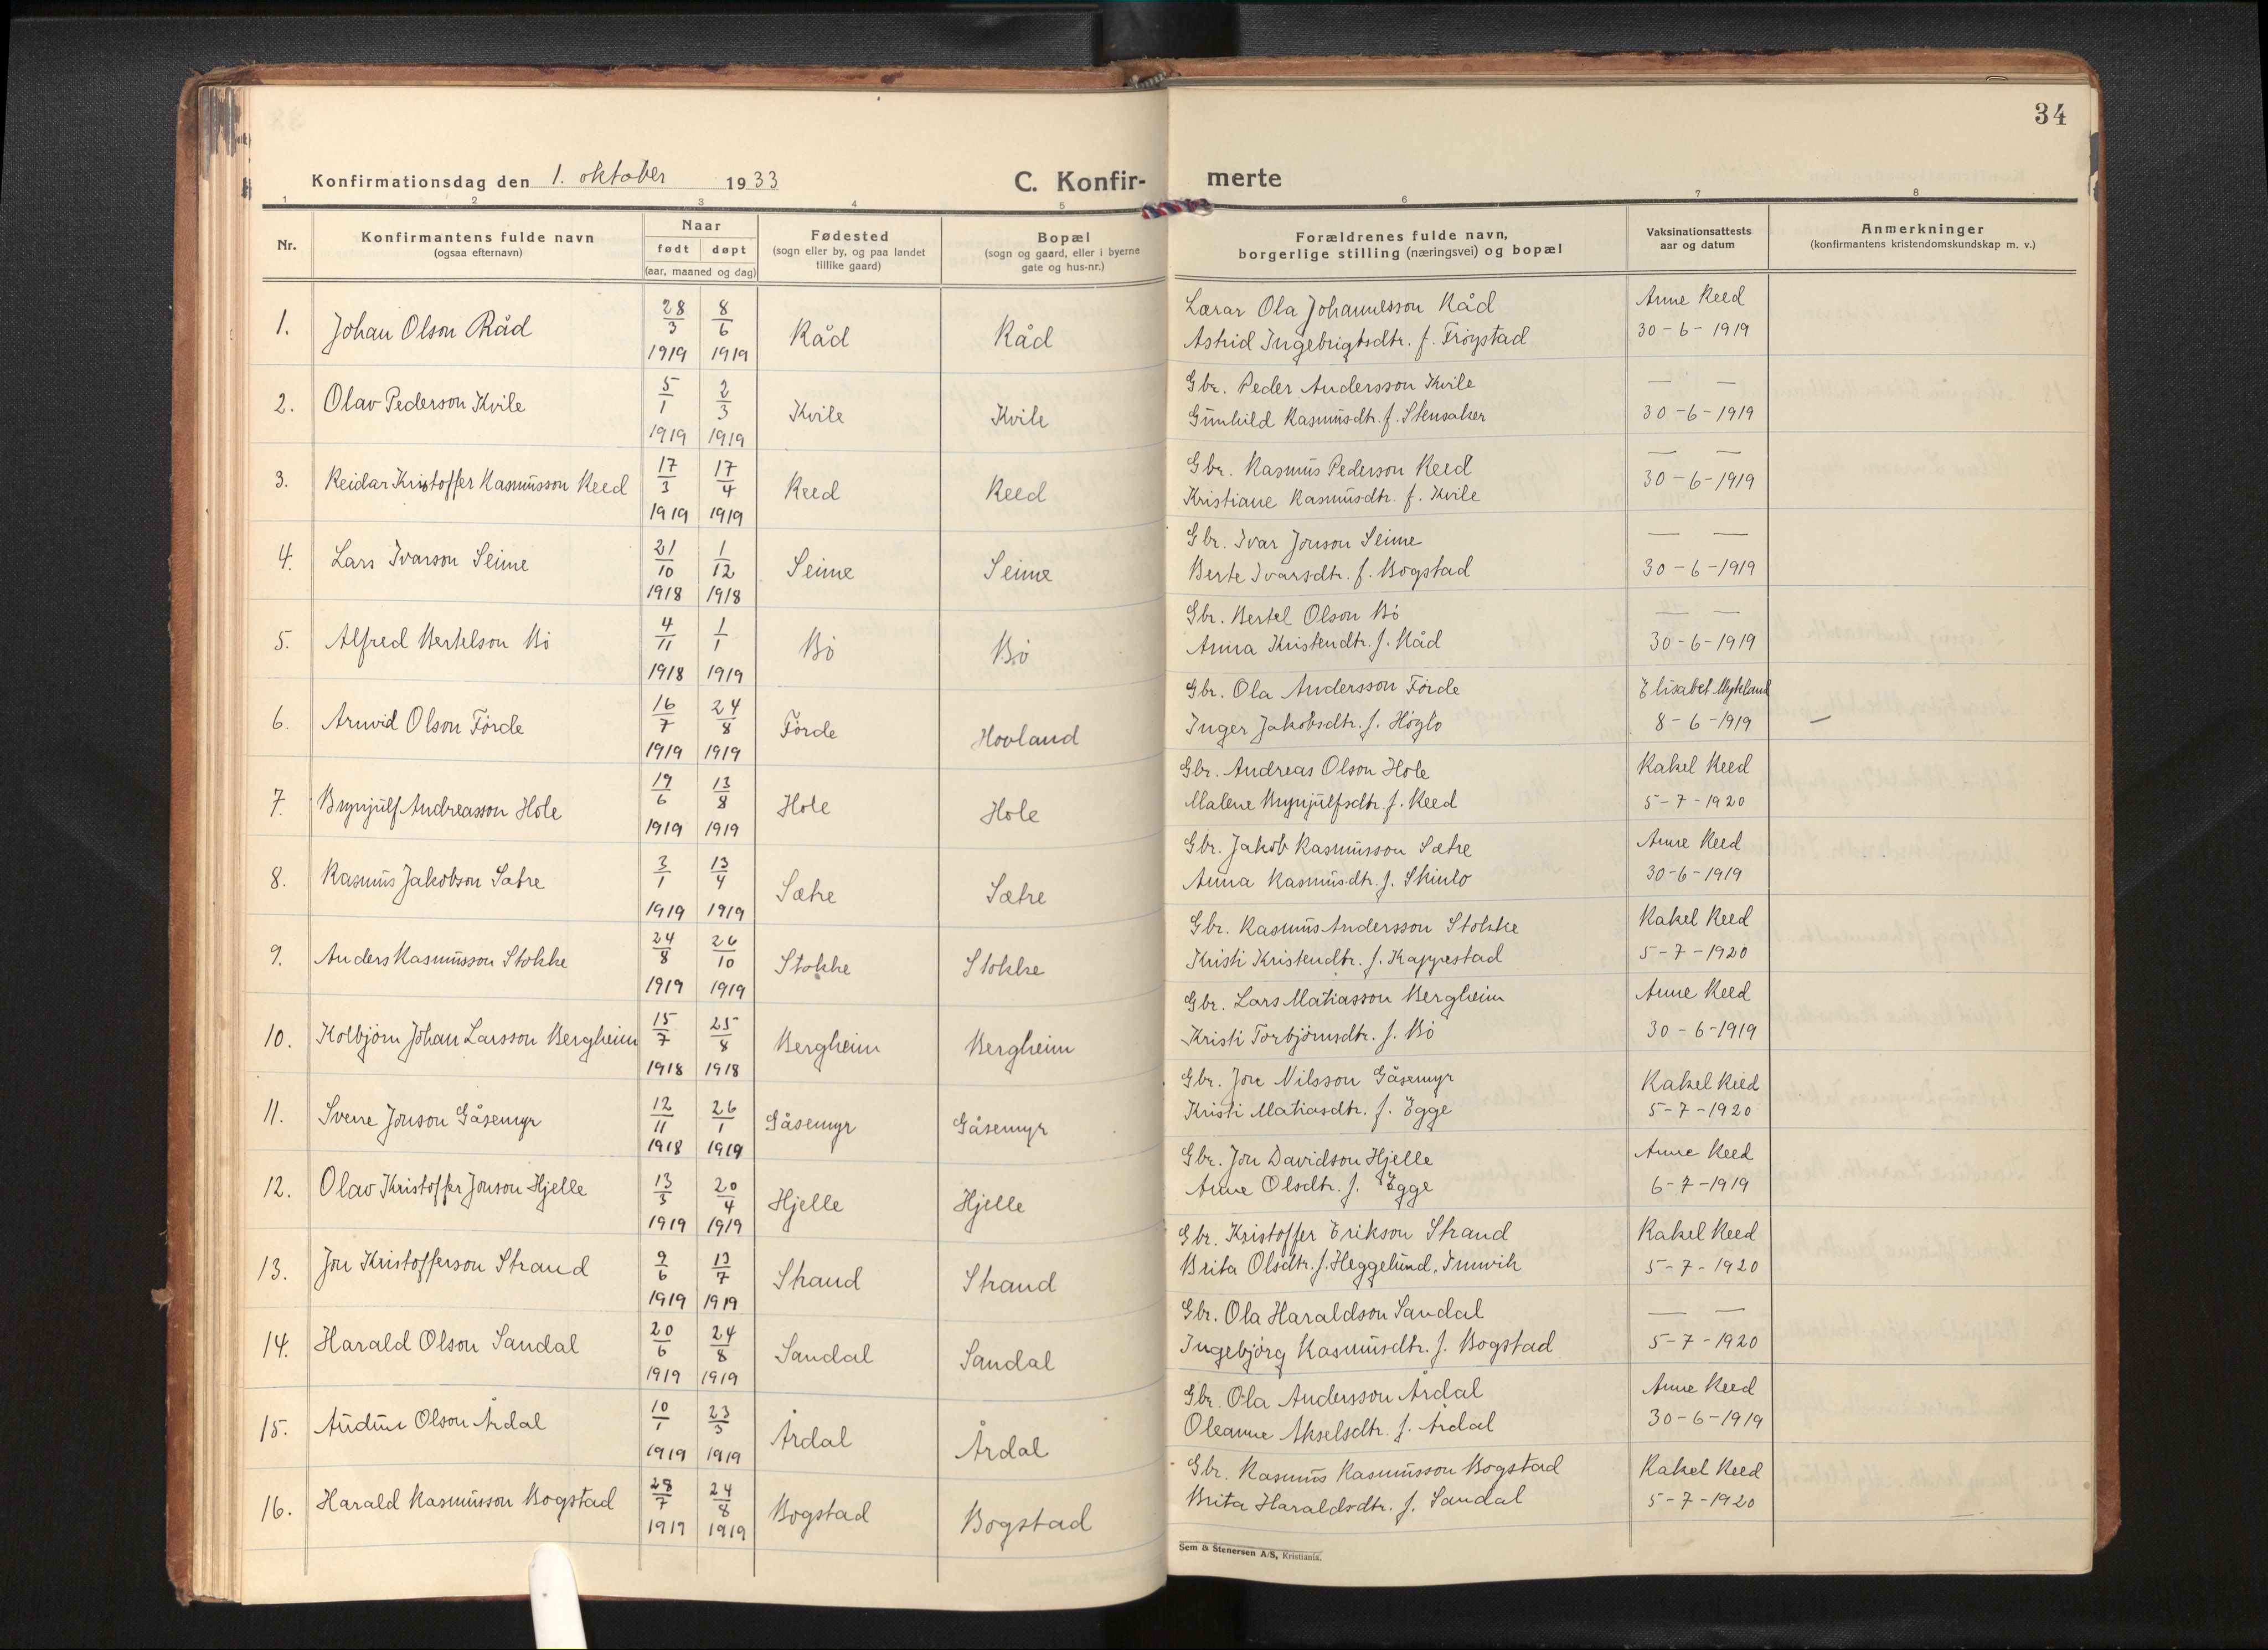 34
Konfirmationsdag den 1. oktober 1933
C. Konfir-merte
1 2 3 4 5 6 7 8
Nr.
Konfirmantens fulde navn
(ogsaa efternavn)
Naar
født døpt
(aar, maaned og dag)
Fødested
(sogn eller by, og paa landet
tillike gaard)
Bopæl
(sogn og gaard, eller i byerne
gate og hus-nr.)
Forældrenes fulde navn,
borgerlige stilling (næringsvei) og bopæl
Vaksinationsattests
aar og datum
Anmerkninger
(konfirmantens kristendomskundskap m. v.)
1. Johan Olson Råd 28/3 1919 8/6 1919 Råd Råd
Lærar Ola Johannesson Råd Anne Reed
Astrid Ingebrigtsdtr. f. Frøystad 30-6-1919
2. Olav Pederson Kvile 5/1 1919 2/3 1919 Kvile Kvile
Gbr. Peder Andersson Kvile — —
Gunhild Rasmusdtr. f. Stensaker 30-6-1919
3. Reidar Kristoffer Rasmusson Reed 17/3 1919 17/4 1919 Reed Reed
Gbr. Rasmus Pederson Reed — —
Kristiane Rasmusdtr. f. Kvile 30-6-1919
4. Lars Ivarson Seime 21/10 1918 1/12 1918 Seime Seime
Gbr. Ivar Jonson Seime — —
Berte Ivarsdtr. f. Bogstad 30-6-1919
5. Alfred Bertelson Bø 4/11 1918 1/1 1919 Bø Bø
Gbr. Bertel Olson Bø — —
Anna Kristendtr. f. Råd 30-6-1919
6. Arnvid Olson Førde 16/7 1919 24/8 1919 Førde Hovland
Gbr. Ola Andersson Førde Elisabet Mykland
Inger Jakobsdtr. f. Høglo 8-6-1919 —
7. Brynjulf Andreasson Hole 19/6 1919 13/8 1919 Hole Hole
Gbr. Andreas Olson Hole Rakel Reed
Malene Brynjulfsdtr. f. Reed 5-7-1920
8. Rasmus Jakobson Sætre 3/1 1919 13/4 1919 Sætre Sætre
Gbr. Jakob Rasmusson Sætre Anne Reed
Anna Rasmusdtr. f. Skinlo 30-6-1919
9. Anders Rasmusson Stokke 24/8 1919 26/10 1919 Stokke Stokke
Gbr. Rasmus Andersson Stokke Rakel Reed
Kristi Kristendtr. f. Kappestad 5-7-1920
10. Kolbjørn Johan Larsson Bergheim 15/7 1918 25/8 1918 Bergheim Bergheim
Gbr. Lars Matiasson Bergheim Anne Reed
Kristi Torbjørnsdtr. f. Bø 30-6-1919
11. Sverre Jonson Gåsemyr 12/11 1918 26/1 1919 Gåsemyr Gåsemyr
Gbr. Jon Nilsson Gåsemyr Rakel Reed
Kristi Matiasdtr. f. Egge 5-7-1920
12. Olav Kristoffer Jonson Hjelle 13/3 1919 20/4 1919 Hjelle Hjelle
Gbr. Jon Davidson Hjelle Anne Reed
Anne Olsdtr. f. Egge 6-7-1919
13. Jon Kristofferson Strand 9/6 1919 13/7 1919 Strand Strand
Gbr. Kristoffer Erikson Strand Rakel Reed
Brita Olsdtr. f. Heggelund, Innvik 5-7-1920
14. Harald Olson Sandal 20/6 1919 24/8 1919 Sandal Sandal
Gbr. Ola Haraldson Sandal — —
Ingebjørg Rasmusdtr. f. Bogstad 5-7-1920
15. Audun Olson Årdal 10/1 1919 23/3 1919 Årdal Årdal
Gbr. Ola Andersson Årdal Anne Reed
Oleanne Akselsdtr. f. Årdal 30-6-1919
16. Harald Rasmusson Bogstad 28/7 1919 24/8 1919 Bogstad Bogstad
Gbr. Rasmus Rasmusson Bogstad Rakel Reed
Brita Haraldsdtr. f. Sandal 5-7-1920
Sem & Stenersen A/S, Kristiania.